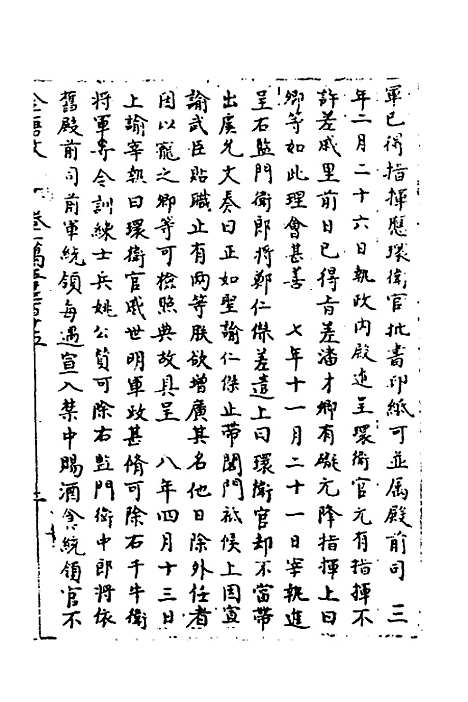 軍已得指揮應環衛官批書印紙可並屬殿前司　三
年二月二十六日執政内殿進呈環衛官元有指揮不
許差戚里前日已得旨差潘才卿有礙元降指揮上曰
卿等如此理會甚善　七年十一月二十一日宰執進
呈右監門衛郎將鄭仁傑差遣上曰環衛官却不當帶
出虞允文奏曰正如聖諭仁傑止帶閤門祗候上因宣
諭武臣貼職止有兩等朕欲增廣其名他日除外任者
因以寵之卿等可檢照典故具呈　八年四月十三日
上諭宰執曰環衛官戚世明軍政甚脩可除右千牛衛
將軍專令訓練士兵姚公贇可除右監門衛中郎將依
舊殿前司前軍統領每遇宣入禁中賜酒食統領官不